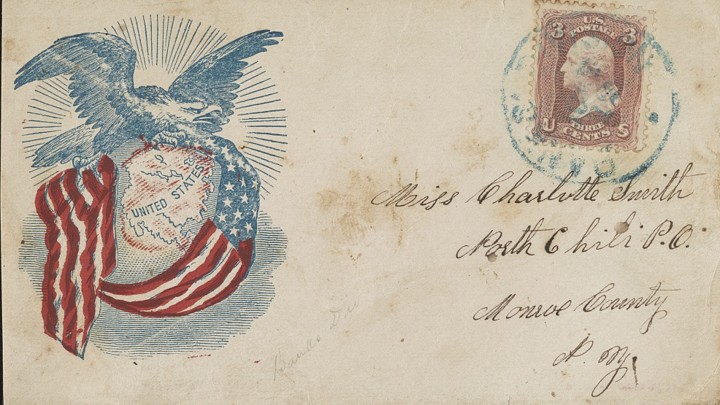 UNITED STATES
3 U.S. POSTAGE 3
U THREE CENTS S
Miss Charlotte Smith
North Chili P.O.
Monroe County
N. Y.